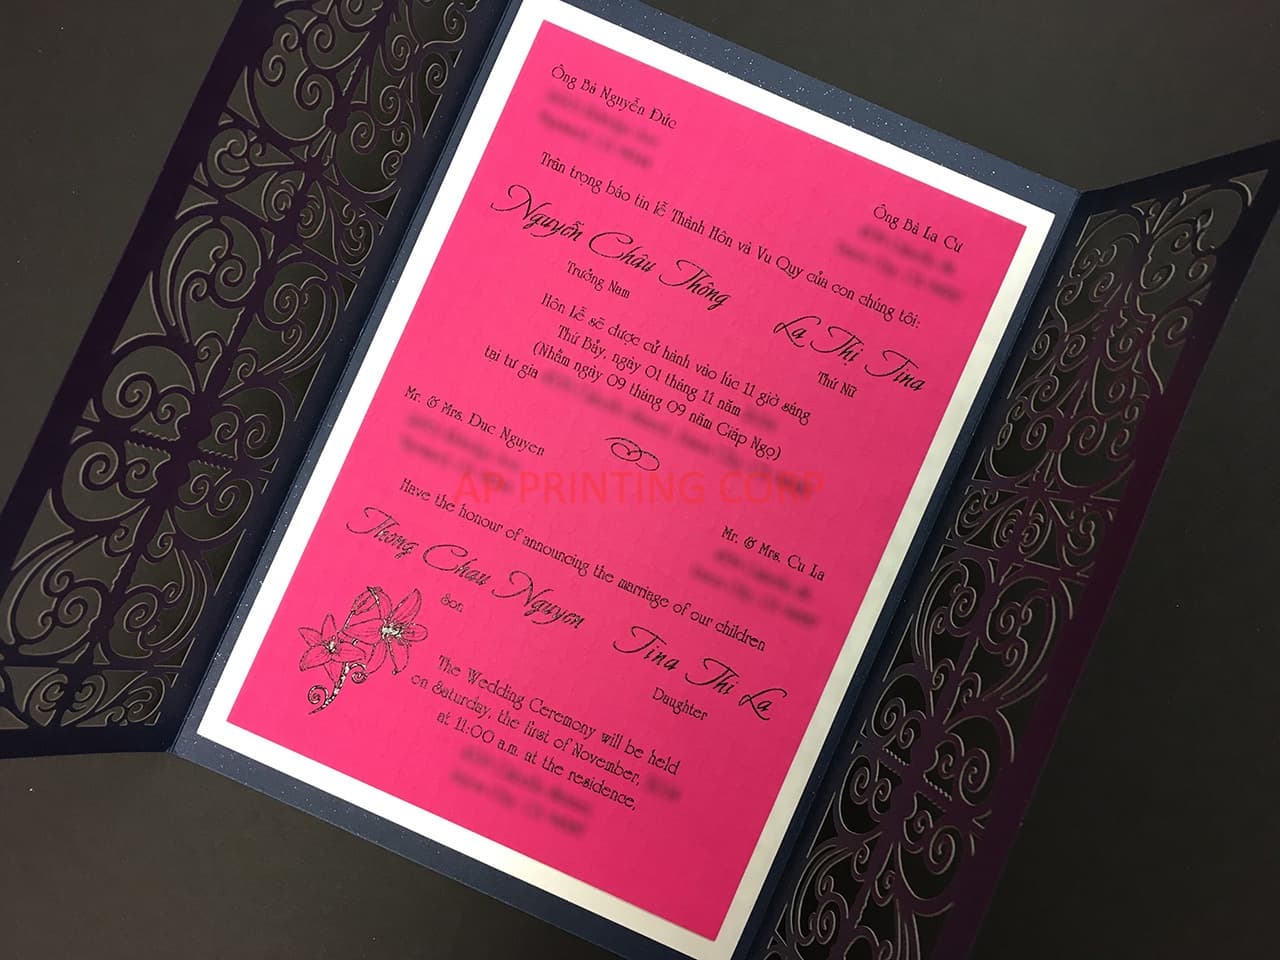 Ông Bà Nguyễn Đức
Ông Bà La Cư
Trân trọng báo tin lễ Thành Hôn và Vu Quy của con chúng tôi:
Nguyễn Châu Thông
Trưởng Nam
La Thị Tina
Thứ Nữ
Hôn lễ sẽ được cử hành vào lúc 11 giờ sáng
Thứ Bảy, ngày 01 tháng 11 năm
(Nhằm ngày 09 tháng 09 năm Giáp Ngọ)
tại tư gia
Mr. & Mrs. Duc Nguyen
AP PRINTING CORP
Mr. & Mrs. Cu La
Have the honour of announcing the marriage of our children
Thong Chau Nguyen
Son
Tina Thi La
Daughter
The Wedding Ceremony will be held
on Saturday, the first of November,
at 11:00 a.m. at the residence,